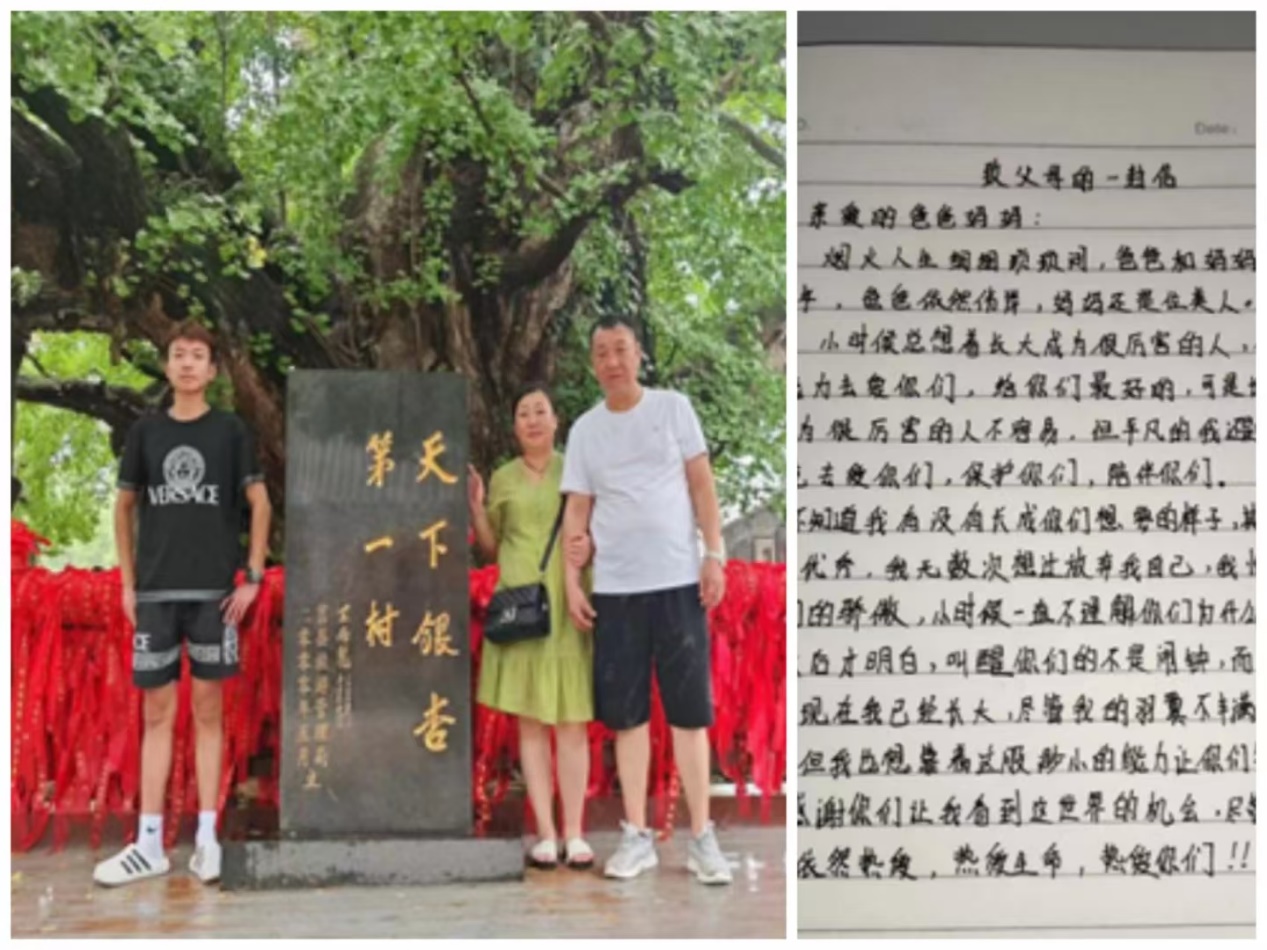 VERSACE
天下银杏
第一村
二零零零年五月立
Date:
致父母的一封信
亲爱的爸爸妈妈：
烟火人生细细琐琐间，爸爸和妈妈
年，爸爸依然伟岸，妈妈还是位美人。
小时候总想着长大成为很厉害的人，
力去爱你们，给你们最好的，可是
为很厉害的人不容易，但平凡的我还
去爱你们，保护你们，陪伴你们。
不知道我有没有长成你们想要的样子，其
优秀，我无数次想过放弃我自己，我
们的骄傲，小时候一直不理解你们为什么
后才明白，叫醒你们的不是闹钟，而
现在我已经长大，尽管我的羽翼不丰满
但我也想靠着这股渺小的能力让你们
感谢你们让我看到这世界的机会，尽
依然热爱，热爱生命，热爱你们！！